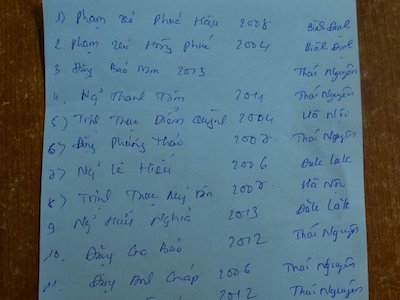 1) Phạm Phúc Hậu 2008 Bình Định
2 Phạm Hồng Phúc 2004 Bình Định
3 Đặng Bảo Nam 2013 Thái Nguyên
4. Ngô Thanh Tâm 2011 Thái Nguyên
5) Trịnh Thục Diễm Quỳnh 2004 Hà Nội
6) Đặng Phương Thảo Thái Nguyên
7) Ngô Lê Hiếu 2006 Đăk Lăk
8) Trịnh Thục Hà Nội
9 Ngô Hữu Nghĩa 2013 Đăk Lăk
10. Đặng Gia Bảo 2012 Thái Nguyên
11. Đặng 2006 Thái Nguyên
2012 Thái Nguyên